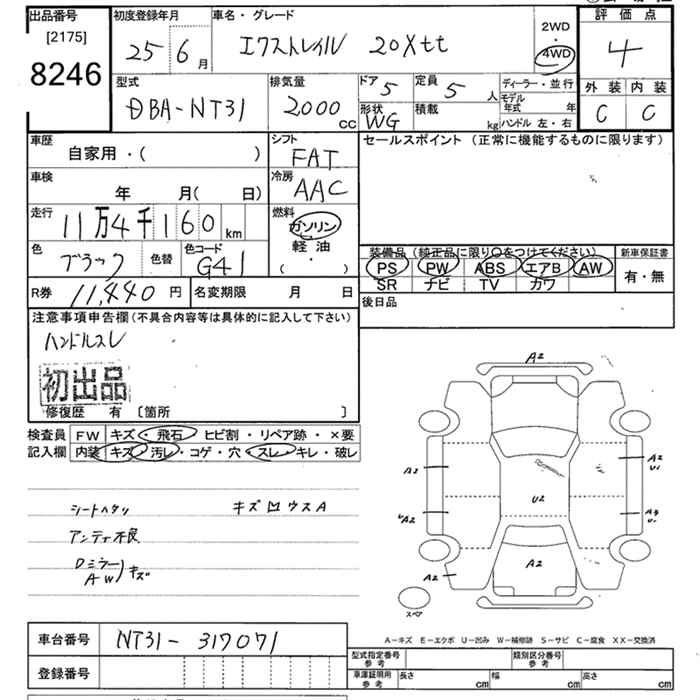 出品番号
[2175]
8246
初度登録年月
25 6月
車名・グレード
エクストレイル 20Xtt
2WD
・
4WD
評価点
4
外装 内装
C C
型式
DBA-NT31
排気量
2000cc
ドア 5
形状 WG
定員 5人
積載 kg
ディーラー・並行
モデル年式 年
ハンドル 左・右
車歴
自家用・( )
シフト
FAT
セールスポイント (正常に機能するものに限ります)
車検
年 月( 日)
冷房
AAC
走行
11万4千160km
燃料
ガソリン
軽油
( ・ )
色
ブラック
色替
色コード
G41
装備品 (純正品に限り○をつけてください)
PS PW ABS エアB AW
SR ナビ TV カワ
新車保証書
有・無
R券 11,440円
名変期限 月 日
後日品
注意事項申告欄(不具合内容等は具体的に記入して下さい)
ハンドルスレ
初出品
修復歴 有 〔箇所 〕
検査員 FW キズ・飛石・ヒビ割・リペア跡・×要
記入欄 内装 キズ・汚レ・コゲ・穴・スレ・キレ・破レ
シートヘタリ キズ凹ウスA
アンテナ不良
Dミラー
AW)キズ
A2
A2
A2
U1
U2
A2
A2
A2
スペア
A-キズ E-エクボ U-凹み W-補修跡 S-サビ C-腐食 XX-交換済
車台番号 NT31-317071
登録番号
型式指定番号 参考
類別区分番号 参考
車庫証明用 参考 長さ cm 幅 cm 高さ cm